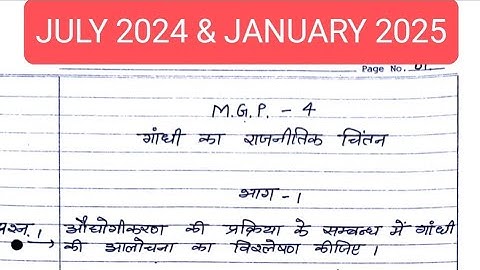 JULY 2024 & JANUARY 2025
Page No. 01.
M.G.P. - 4
गांधी का राजनीतिक चिंतन
भाग - 1
प्रश्न. 1 औद्योगीकरण की प्रक्रिया के सम्बन्ध में गांधी
की आलोचना का विश्लेषण कीजिए ।